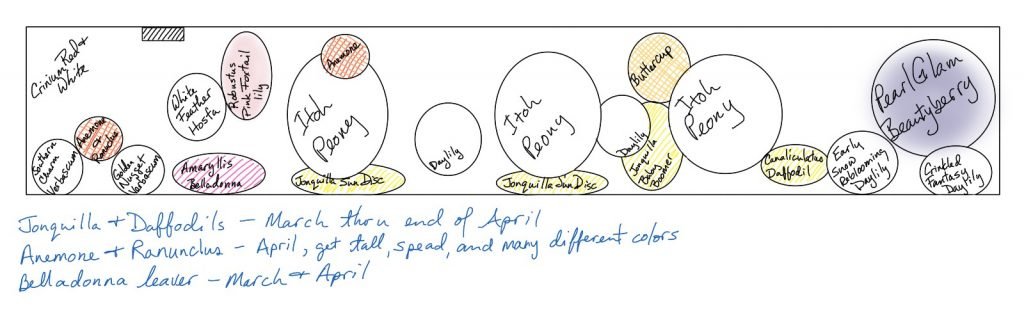 Crinium Red &
White
Southern
Charm
Verbascum
Anemone
&
Ranuclus
Golden
Nugget
Verbascum
White
Feather
Hosta
Robustus
Pink Foxtail
lily
Amaryllis
Belladonna
Anemone
Itoh
Peony
Jonquilla Sun Disc
Daylily
Itoh
Peony
Jonquilla Sun Disc
Buttercup
Daylily
Jonquilla
Baby
Boomer
Itoh
Peony
Canaliculatus
Daffodil
Early
Snow
Reblooming
Daylily
Pearl Glam
Beautyberry
Crinkled
Fantasy
Daylily
Jonquilla & Daffodils - March thru end of April
Anemone & Ranunclus - April, get tall, spead, and many different colors
Belladonna leaver - March & April